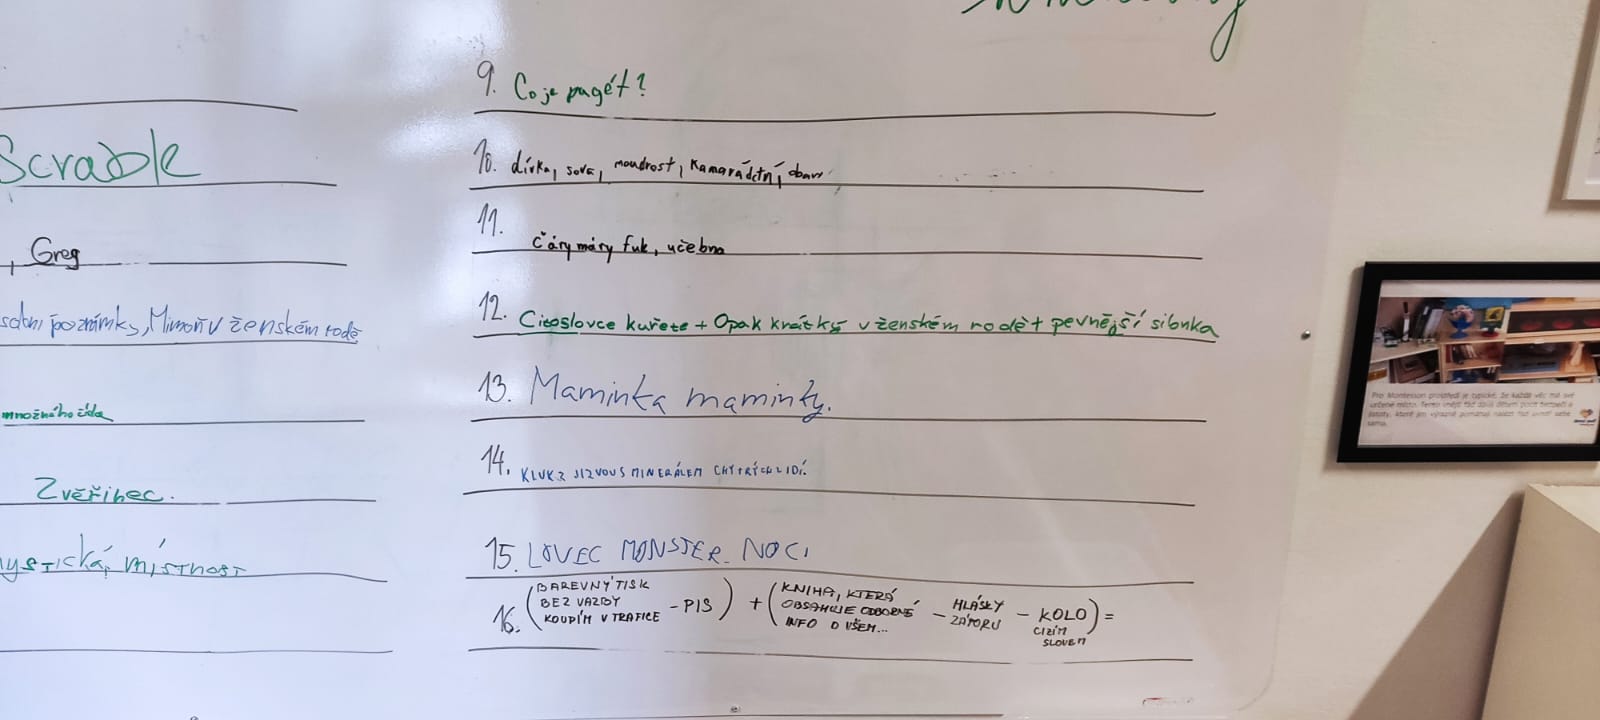 Scrabble
, Greg
poznámky, Mimoň v ženském rodě
množného čísla
Zvěřinec.
místnost
9. Co je pagét?
10. dívka, sova, moudrost, kamarádství,
11. čáry máry fuk, učebna
12. Citoslovce kuřete + Opak krátký v ženském rodě + pevnější silonka
13. Maminka maminky.
14. KLUK Z JIZVOU S MINERÁLEM CHYTRÝCH LIDÍ.
15. LOVEC MONSTER NOCI
16. (BAREVNÝ TISK BEZ VAZBY KOUPÍM V TRAFICE - PIS) + (KNIHA, KTERÁ OBSAHUJE ODBORNÉ INFO O VŠEM... - HLÁSKY ZÁPORU - KOLO CIZÍM SLOVEM) =
Pro Montessori prostředí je typické, že každá věc má své